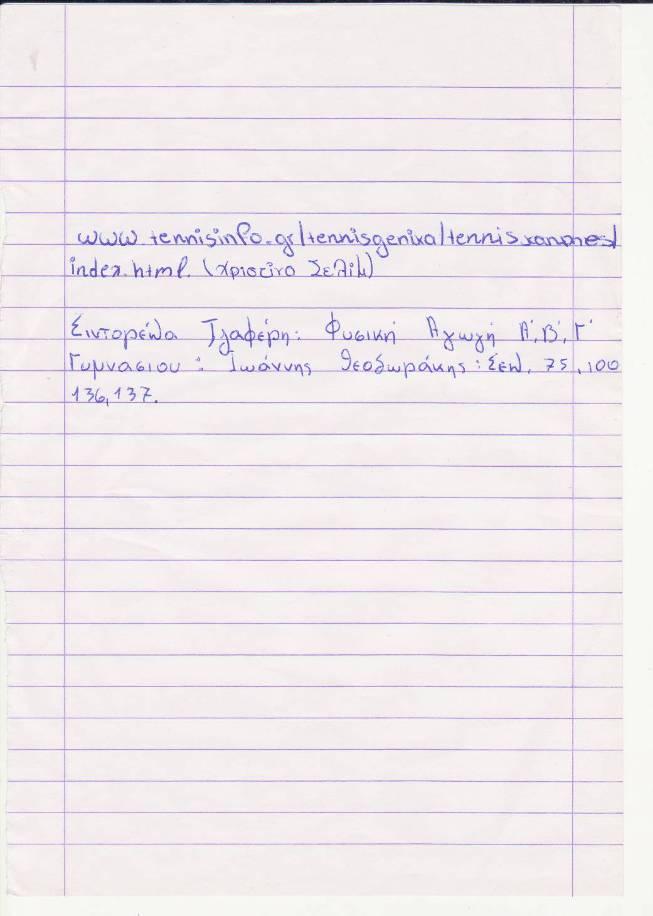 www.tennisinfo.gr/tennisgenika/tenniskanones/
index.html. (Χριστίνα Σελίμ)
Σιντορέλα Τζαφέρη: Φυσική Αγωγή Α', Β', Γ'
Γυμνασιου: Ιωάννης Θεοδωράκης: Σελ. 75, 100
136, 137.